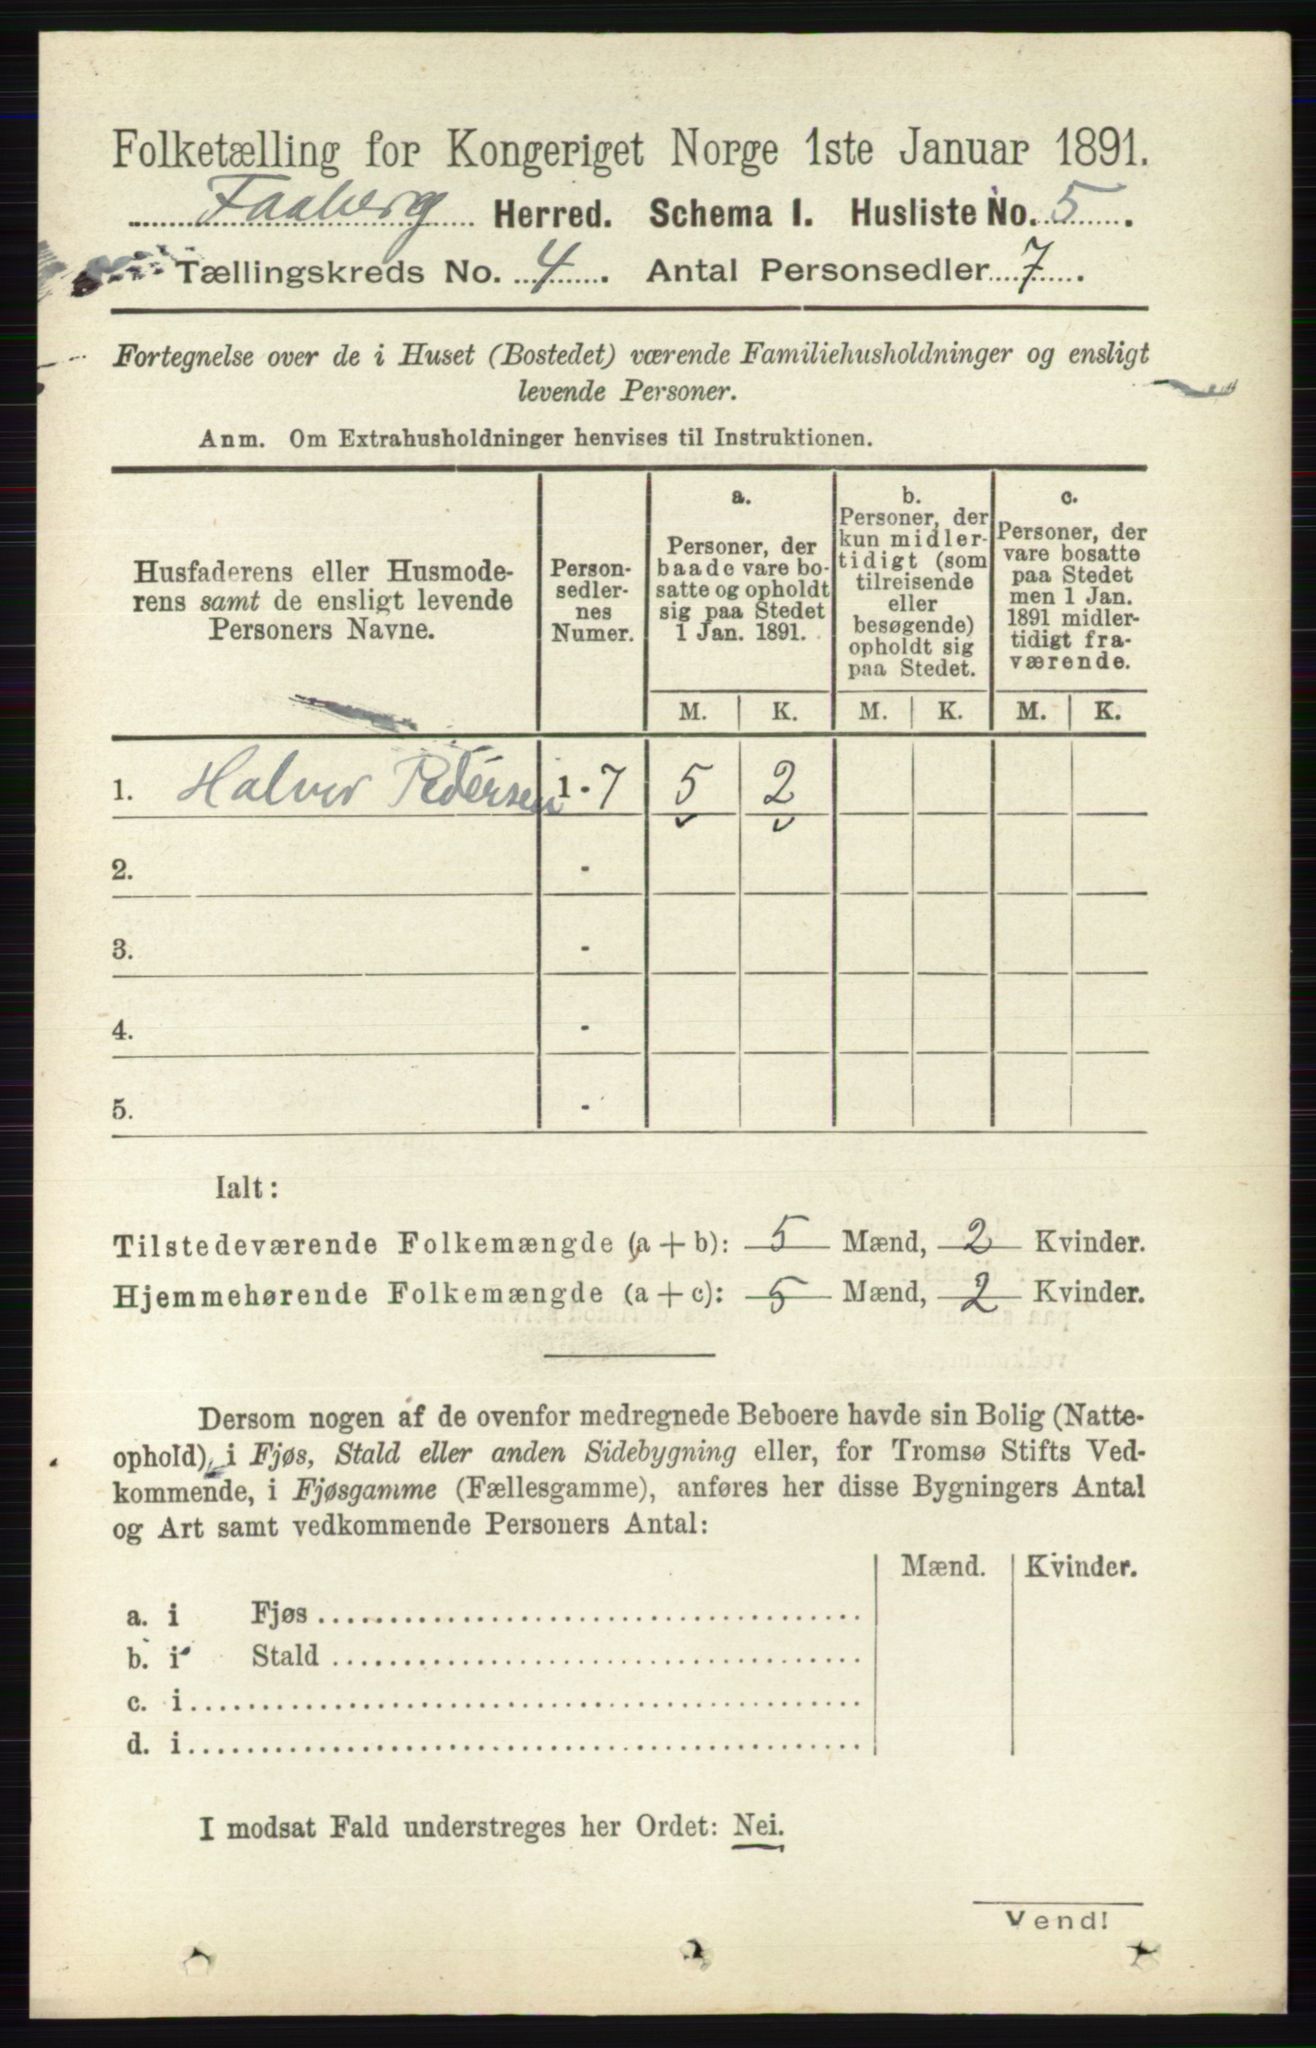 Folketælling for Kongeriget Norge 1ste Januar 1891.
Faaberg Herred. Schema I. Husliste No. 5.
Tællingskreds No. 4. Antal Personsedler 7.
Fortegnelse over de i Huset (Bostedet) værende Familiehusholdninger og ensligt
levende Personer.
Anm. Om Extrahusholdninger henvises til Instruktionen.
Husfaderens eller Husmode-
rens samt de ensligt levende
Personers Navne.
Person-
sedler-
nes
Numer.
a.
Personer, der
baade vare bo-
satte og opholdt
sig paa Stedet
1 Jan. 1891.
b.
Personer, der
kun midler-
tidigt (som
tilreisende
eller
besøgende)
opholdt sig
paa Stedet.
c.
Personer, der
vare bosatte
paa Stedet
men 1 Jan.
1891 midler-
tidigt fra-
værende.
M. K. M. K. M. K.
1. Halvor Pedersen 1-7 5 2
2. -
3. -
4. -
5. -
Ialt:
Tilstedeværende Folkemængde (a + b): 5 Mænd, 2 Kvinder.
Hjemmehørende Folkemængde (a + c): 5 Mænd, 2 Kvinder.
Dersom nogen af de ovenfor medregnede Beboere havde sin Bolig (Natte-
ophold), i Fjøs, Stald eller anden Sidebygning eller, for Tromsø Stifts Ved-
kommende, i Fjøsgamme (Fællesgamme), anføres her disse Bygningers Antal
og Art samt vedkommende Personers Antal:
Mænd. Kvinder.
a. i Fjøs
b. i Stald
c. i
d. i
I modsat Fald understreges her Ordet: Nei.
Vend!